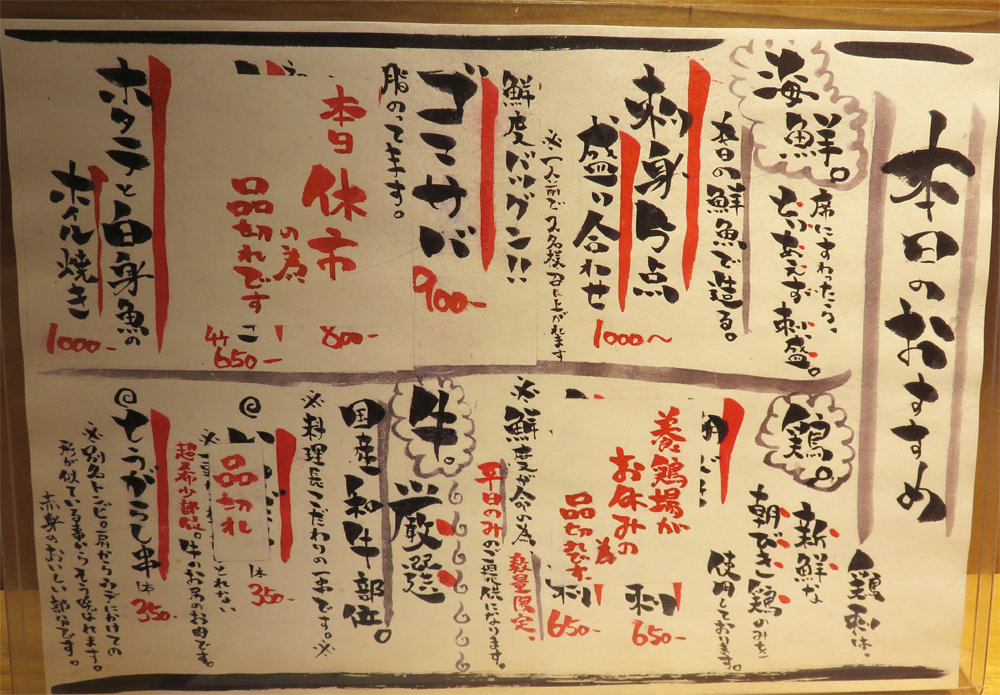 本日のおすすめ
海鮮。
席にすわったら、
とりあえず刺盛。
本日の鮮魚で造る。
刺身5点
盛り合わせ
1000〜
※一人前で2名様召し上がれます
鮮度バツグン!!
ゴマサバ
900-
脂のってます。
本日休市
の為
品切れです
800-
650-
ホタテと白身魚の
ホイル焼き
1000-
鶏刺は、
鶏。
新鮮な
朝びき鶏のみを
使用しております。
養鶏場が
お休みの
為
品切れです
刺
650-
刺
650-
※鮮度が命の為、
平日のみのご提供になります。
数量限定、
牛。
厳選
国産和牛部位。
※料理長こだわりの一本です。※
品切れ
1本
350-
とれない
超希少部位。牛のお尻のお肉です。
とうがらし串
1本
350-
※別名トンビ。肩からウデにかけての
形が似ている事からそう呼ばれます。
赤身のおいしい部分です。